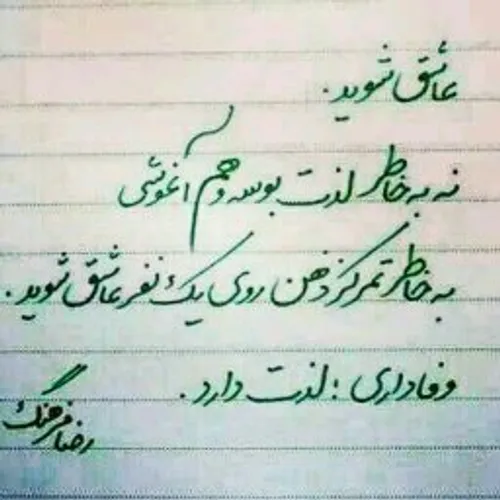 عاشق شوید.
نه به خاطر لذت بوسه و هم آغوشی
به خاطر تمرکز ذهن روی یک نفر عاشق شوید.
وفاداری ؛ لذت دارد.
رضا فرهنگ